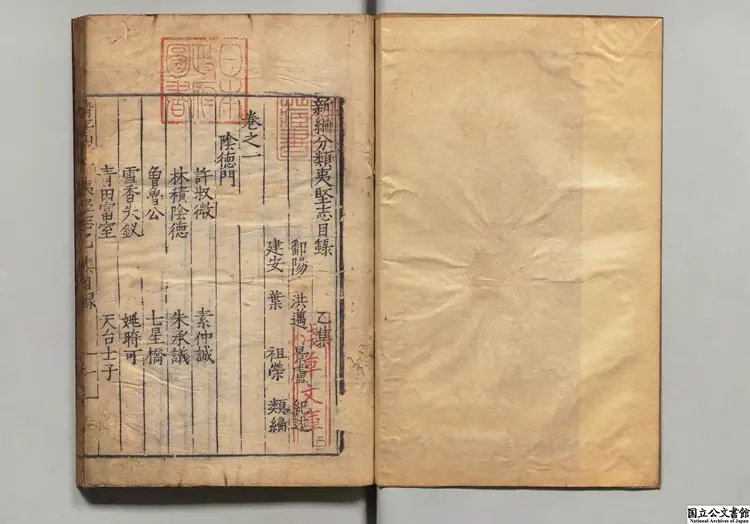 新編分類夷堅志目錄 乙集
鄱陽 洪邁 景盧 紀述
建安 葉 祖榮 類編
卷之一
陰德門
許叔微 素仲誠
林積陰德 朱承議
曾魯公 七星橋
雪香失釵 姚時可
青田富室 天台士子
夷堅志乙集目錄 一
日本
政府
圖書
淺草文庫
国立公文書館
National Archives of Japan